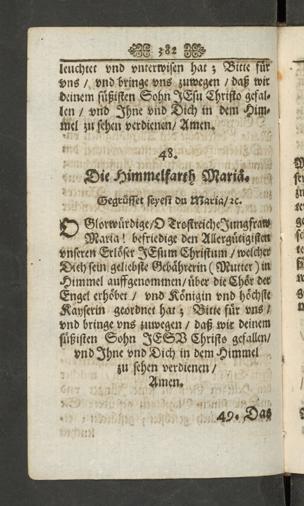 382
leuchtet vnd vnterwisen hat; Bitte für
vns / vnd bringe vns zuwegen / daß wir
deinem süßisten Sohn JEsu Christo gefal-
len / vnd Ihne vnd Dich in dem Him-
mel zu sehen verdienen / Amen.
48.
Die Himmelfarth Mariä.
Gegrüsset seyest du Maria / ꝛc.
O Glorwürdige / O Trostreiche Jungfraw
Maria! befriedige den Allergütigisten
vnseren Erlöser JEsum Christum / welcher
Dich sein geliebste Gebährerin (Mutter) in
Himmel auffgenommen / über die Chör der
Engel erhöbet / vnd Königin vnd höchste
Kayserin geordnet hat; Bitte für vns /
vnd bringe vns zuwegen / daß wir deinem
süßisten Sohn JESV Christo gefallen /
vnd Ihne vnd Dich in dem Himmel
zu sehen verdienen /
Amen.
49. Das